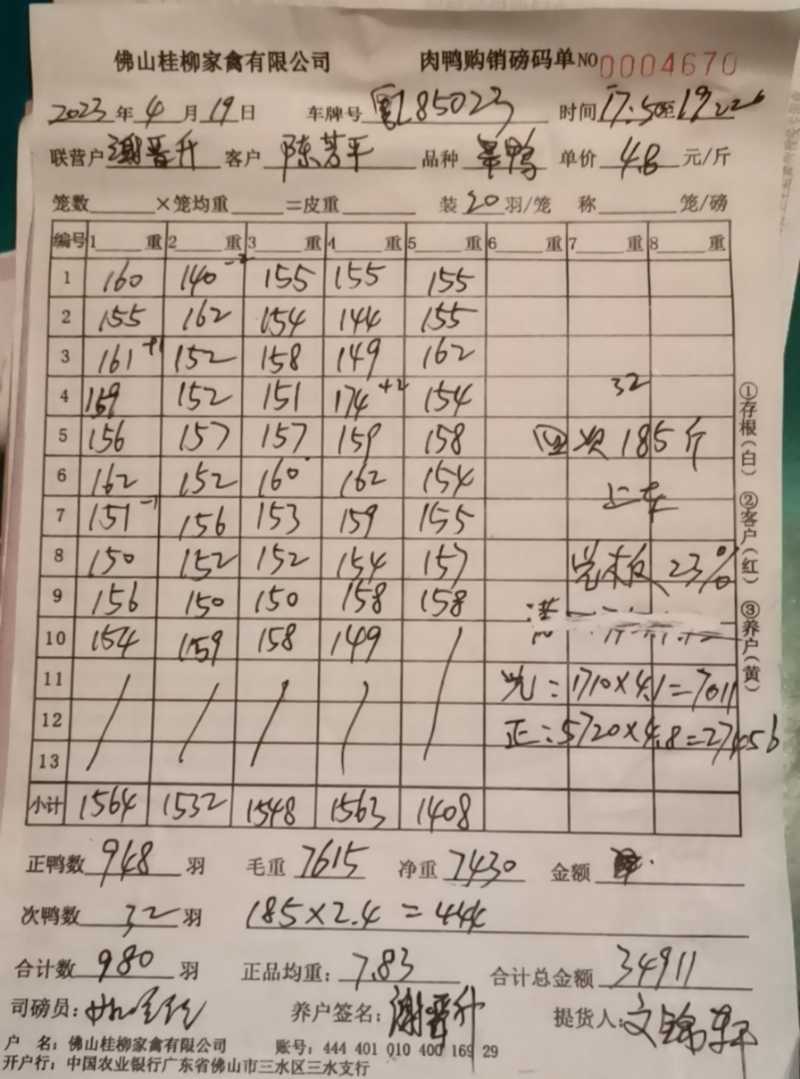 佛山桂柳家禽有限公司 肉鸭购销磅码单 NO 0004670
2023 年 4 月 19 日 车牌号 L85023 时间 17:50至19:22
联营户 谢晋升 客户 陈芳平 品种 鸭 单价 4.8 元/斤
笼数 ×笼均重 =皮重 装 20 羽/笼 称 笼/磅
编号 1 重 2 重 3 重 4 重 5 重 6 重 7 重 8 重
1 160 140 -2 155 155 155
2 155 162 154 144 155
3 161 +1 152 158 149 162
4 159 152 151 174 +2 154 32
5 156 157 157 159 158 次 185斤
6 162 152 160 162 154 上车
7 151 -1 156 153 159 155
8 150 152 152 154 157 光板 23%
9 156 150 150 158 158
10 154 159 158 149
11 光:1710×4.1=7011
12 正:5720×4.8=27456
13
小计 1564 1532 1548 1563 1408
正鸭数 948 羽 毛重 7615 净重 7430 金额
次鸭数 32 羽 185×2.4=444
合计数 980 羽 正品均重: 7.83 合计总金额 34911
司磅员: 养户签名: 谢晋升 提货人: 文锦轩
户 名: 佛山桂柳家禽有限公司 账号: 444 401 010 400 169 29
开户行: 中国农业银行广东省佛山市三水区三水支行
①存根(白) ②客户(红) ③养户(黄)